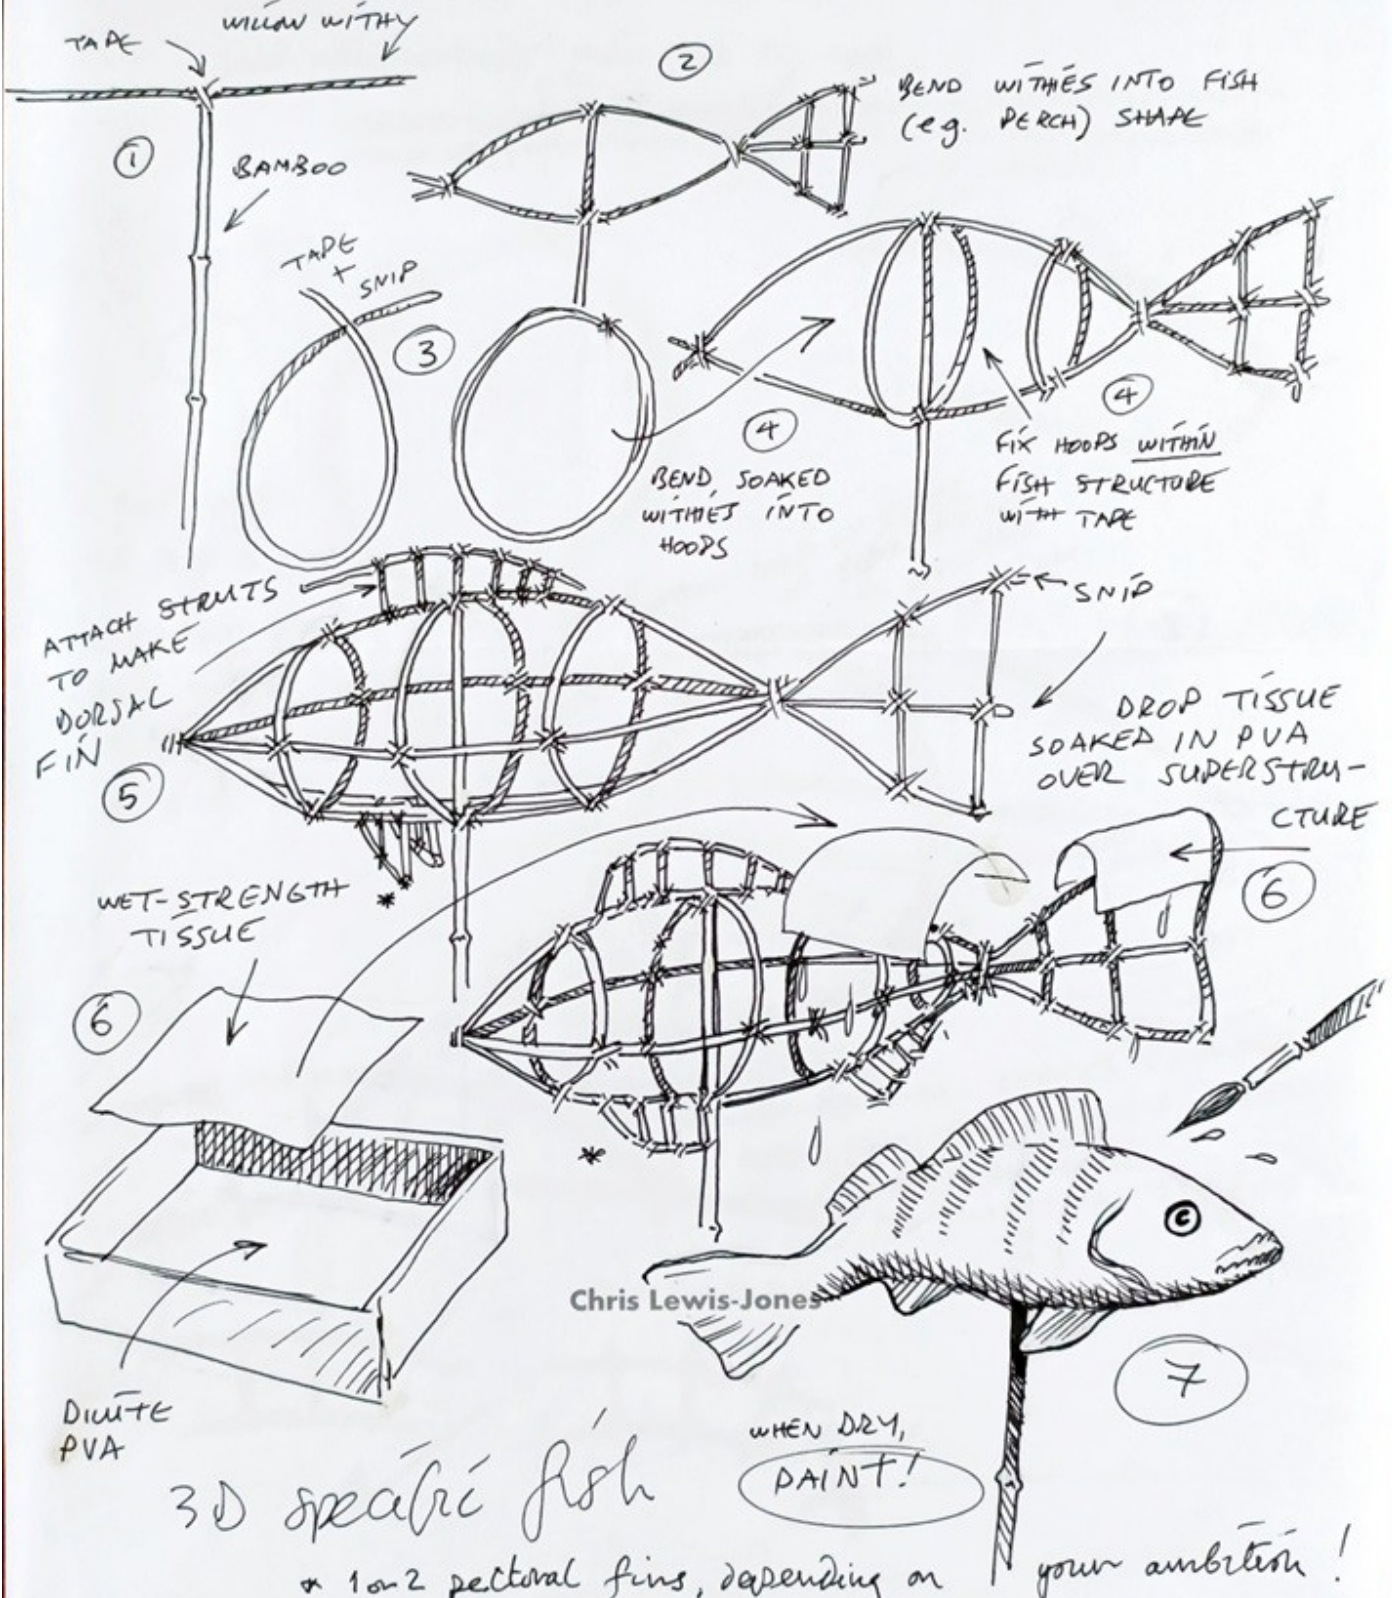 WILLOW WITHY
TAPE
1
BAMBOO
2
BEND WITHIES INTO FISH
(e.g. PERCH) SHAPE
TAPE
+
SNIP
3
4
BEND SOAKED
WITHIES INTO
HOOPS
4
FIX HOOPS WITHIN
FISH STRUCTURE
WITH TAPE
ATTACH STRUTS
TO MAKE
DORSAL
FIN
5
*
SNIP
DROP TISSUE
SOAKED IN PVA
OVER SUPERSTRU-
CTURE
6
WET-STRENGTH
TISSUE
6
*
DILUTE
PVA
Chris Lewis-Jones
7
WHEN DRY,
PAINT!
3D specific fish
* 1 or 2 pectoral fins, depending on your ambition!